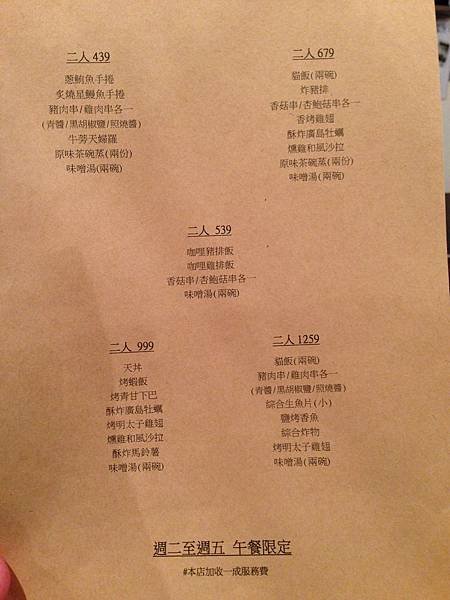 二人 439
蔥鮪魚手捲
炙燒星鰻魚手捲
豬肉串/雞肉串各一
(青醬/黑胡椒鹽/照燒醬)
牛蒡天婦羅
原味茶碗蒸(兩份)
味噌湯(兩碗)
二人 679
貓飯(兩碗)
炸豬排
香菇串/杏鮑菇串各一
香烤雞翅
酥炸廣島牡蠣
燻雞和風沙拉
原味茶碗蒸(兩份)
味噌湯(兩碗)
二人 539
咖哩豬排飯
咖哩雞排飯
香菇串/杏鮑菇串各一
味噌湯(兩碗)
二人 999
天丼
烤蝦飯
烤青甘下巴
酥炸廣島牡蠣
烤明太子雞翅
燻雞和風沙拉
酥炸馬鈴薯
味噌湯(兩碗)
二人 1259
貓飯(兩碗)
豬肉串/雞肉串各一
(青醬/黑胡椒鹽/照燒醬)
綜合生魚片(小)
鹽烤香魚
綜合炸物
烤明太子雞翅
味噌湯(兩碗)
週二至週五 午餐限定
#本店加收一成服務費